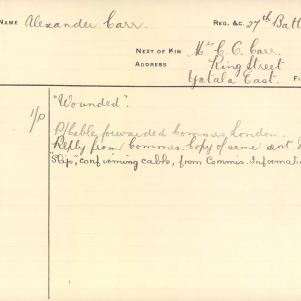 NAME Alexander Carr. REG. &C. 27th Batt
NEXT OF KIN Mr C. C. Carr.
ADDRESS King Street
Yatala East.
1/0 "Wounded".
P/Cable, forwarded Commis, London.
Reply from Commis. Copy of same sent
Slip, "confirming cable, from Commis. Informati